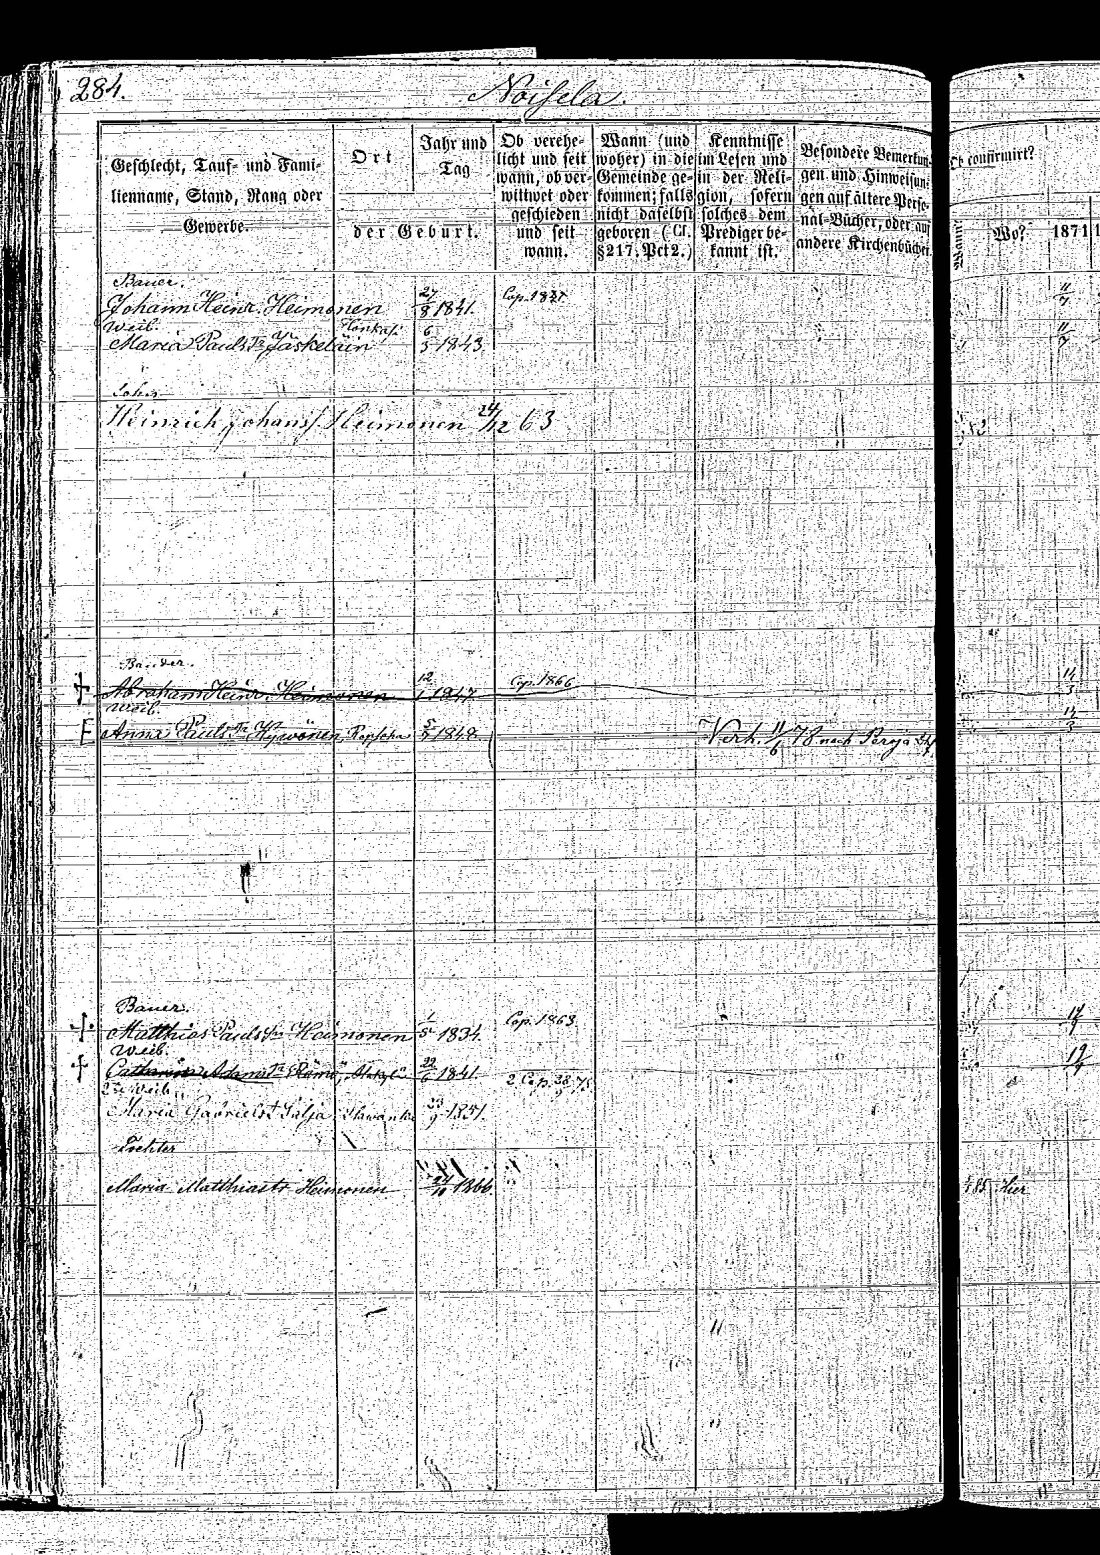 284.
Noisela.
Geschlecht, Tauf- und Fami-
lienname, Stand, Rang oder
Gewerbe.
Ort
Jahr und
Tag
der Geburt.
Ob verehe-
licht und seit
wann, ob ver-
wittwet oder
geschieden
und seit
wann.
Wann (und
woher) in die
Gemeinde ge-
kommen; falls
nicht daselbst
geboren (Cf.
§217. Pct 2.)
Kenntnisse
im Lesen und
in der Reli-
gion, sofern
solches dem
Prediger be-
kannt ist.
Besondere Bemerkun-
gen und Hinweisun-
gen auf ältere Perso-
nal-Bücher, oder auf
andere Kirchenbücher.
Ob confirmirt?
Wann?
Wo?
1871
Bauer.
Johann Heinr. Heimonen 27/8 1841.
11/7
Weib.
Maria Pauls Tr Jäskeläin 6/5 1843
11/7
Sohn
Heinrich Johans/ Heimonen 24/12 63
Bauer.
Abraham Heinr. Heimonen 12/1 1847 Cop. 1866
14/3
Weib.
Anna Pauls Tr Hywönen, 5/5 1848 Verh. 11/6 78 nach
14/3
Bauer.
Matthias Pauls Sn Heimonen 1/5 1834. Cop. 1863
Weib.
Catharina Adams Tr 22/6 1841.
2te Weib.
Maria Gabrielst 1851.
Tochter
Maria Matthiastr Heimonen 24/10 1866.
85 Hier